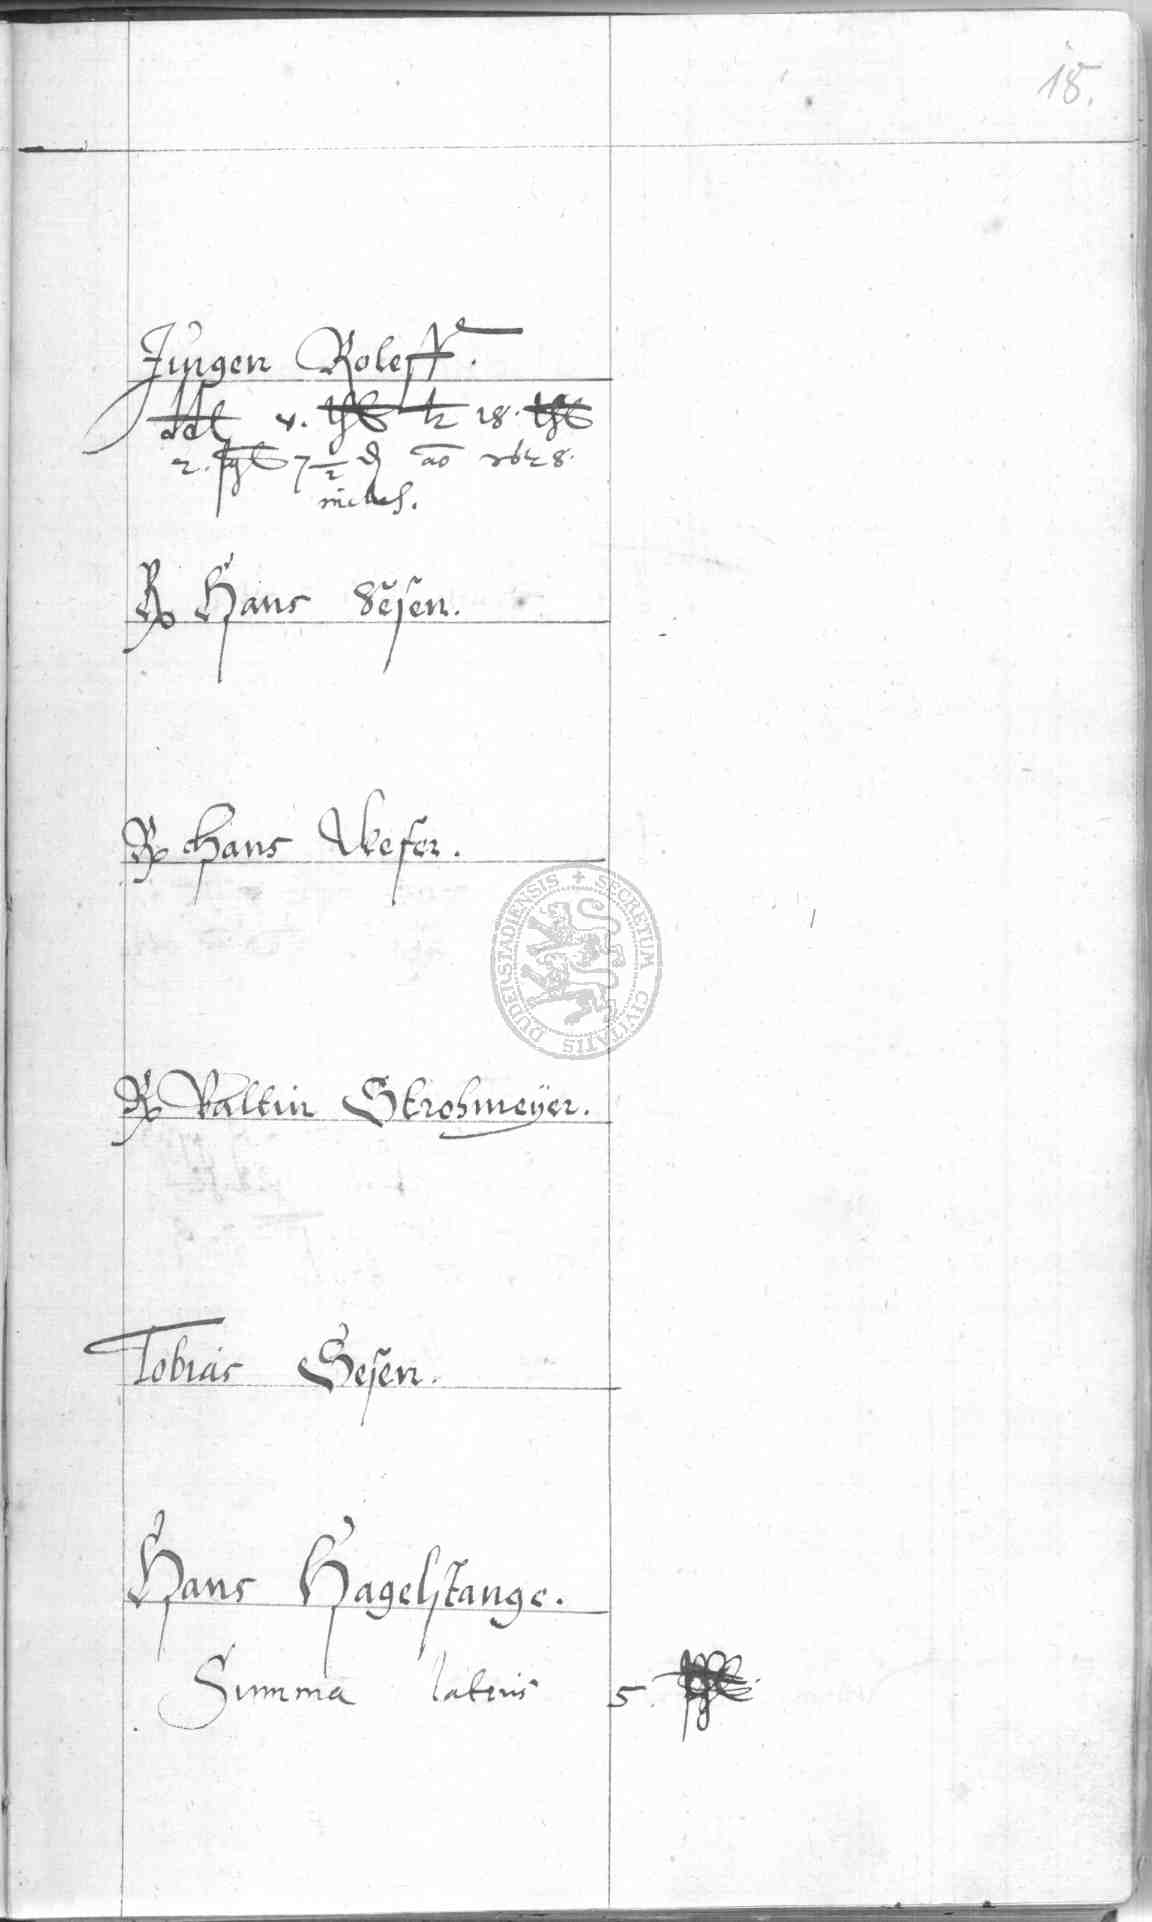 18.
Jurgen Roleff.
ddt v. 18.
2. 7 1/2 ₰ ao 1628.
michel.
R Hans Sesen.
R Hans Weser.
R Valtin Strohmeÿer.
Tobias Sesen.
Hans Hagelstange.
Summa lateris 5.
SECRETUM CIVITATIS DUDERSTADIENSIS